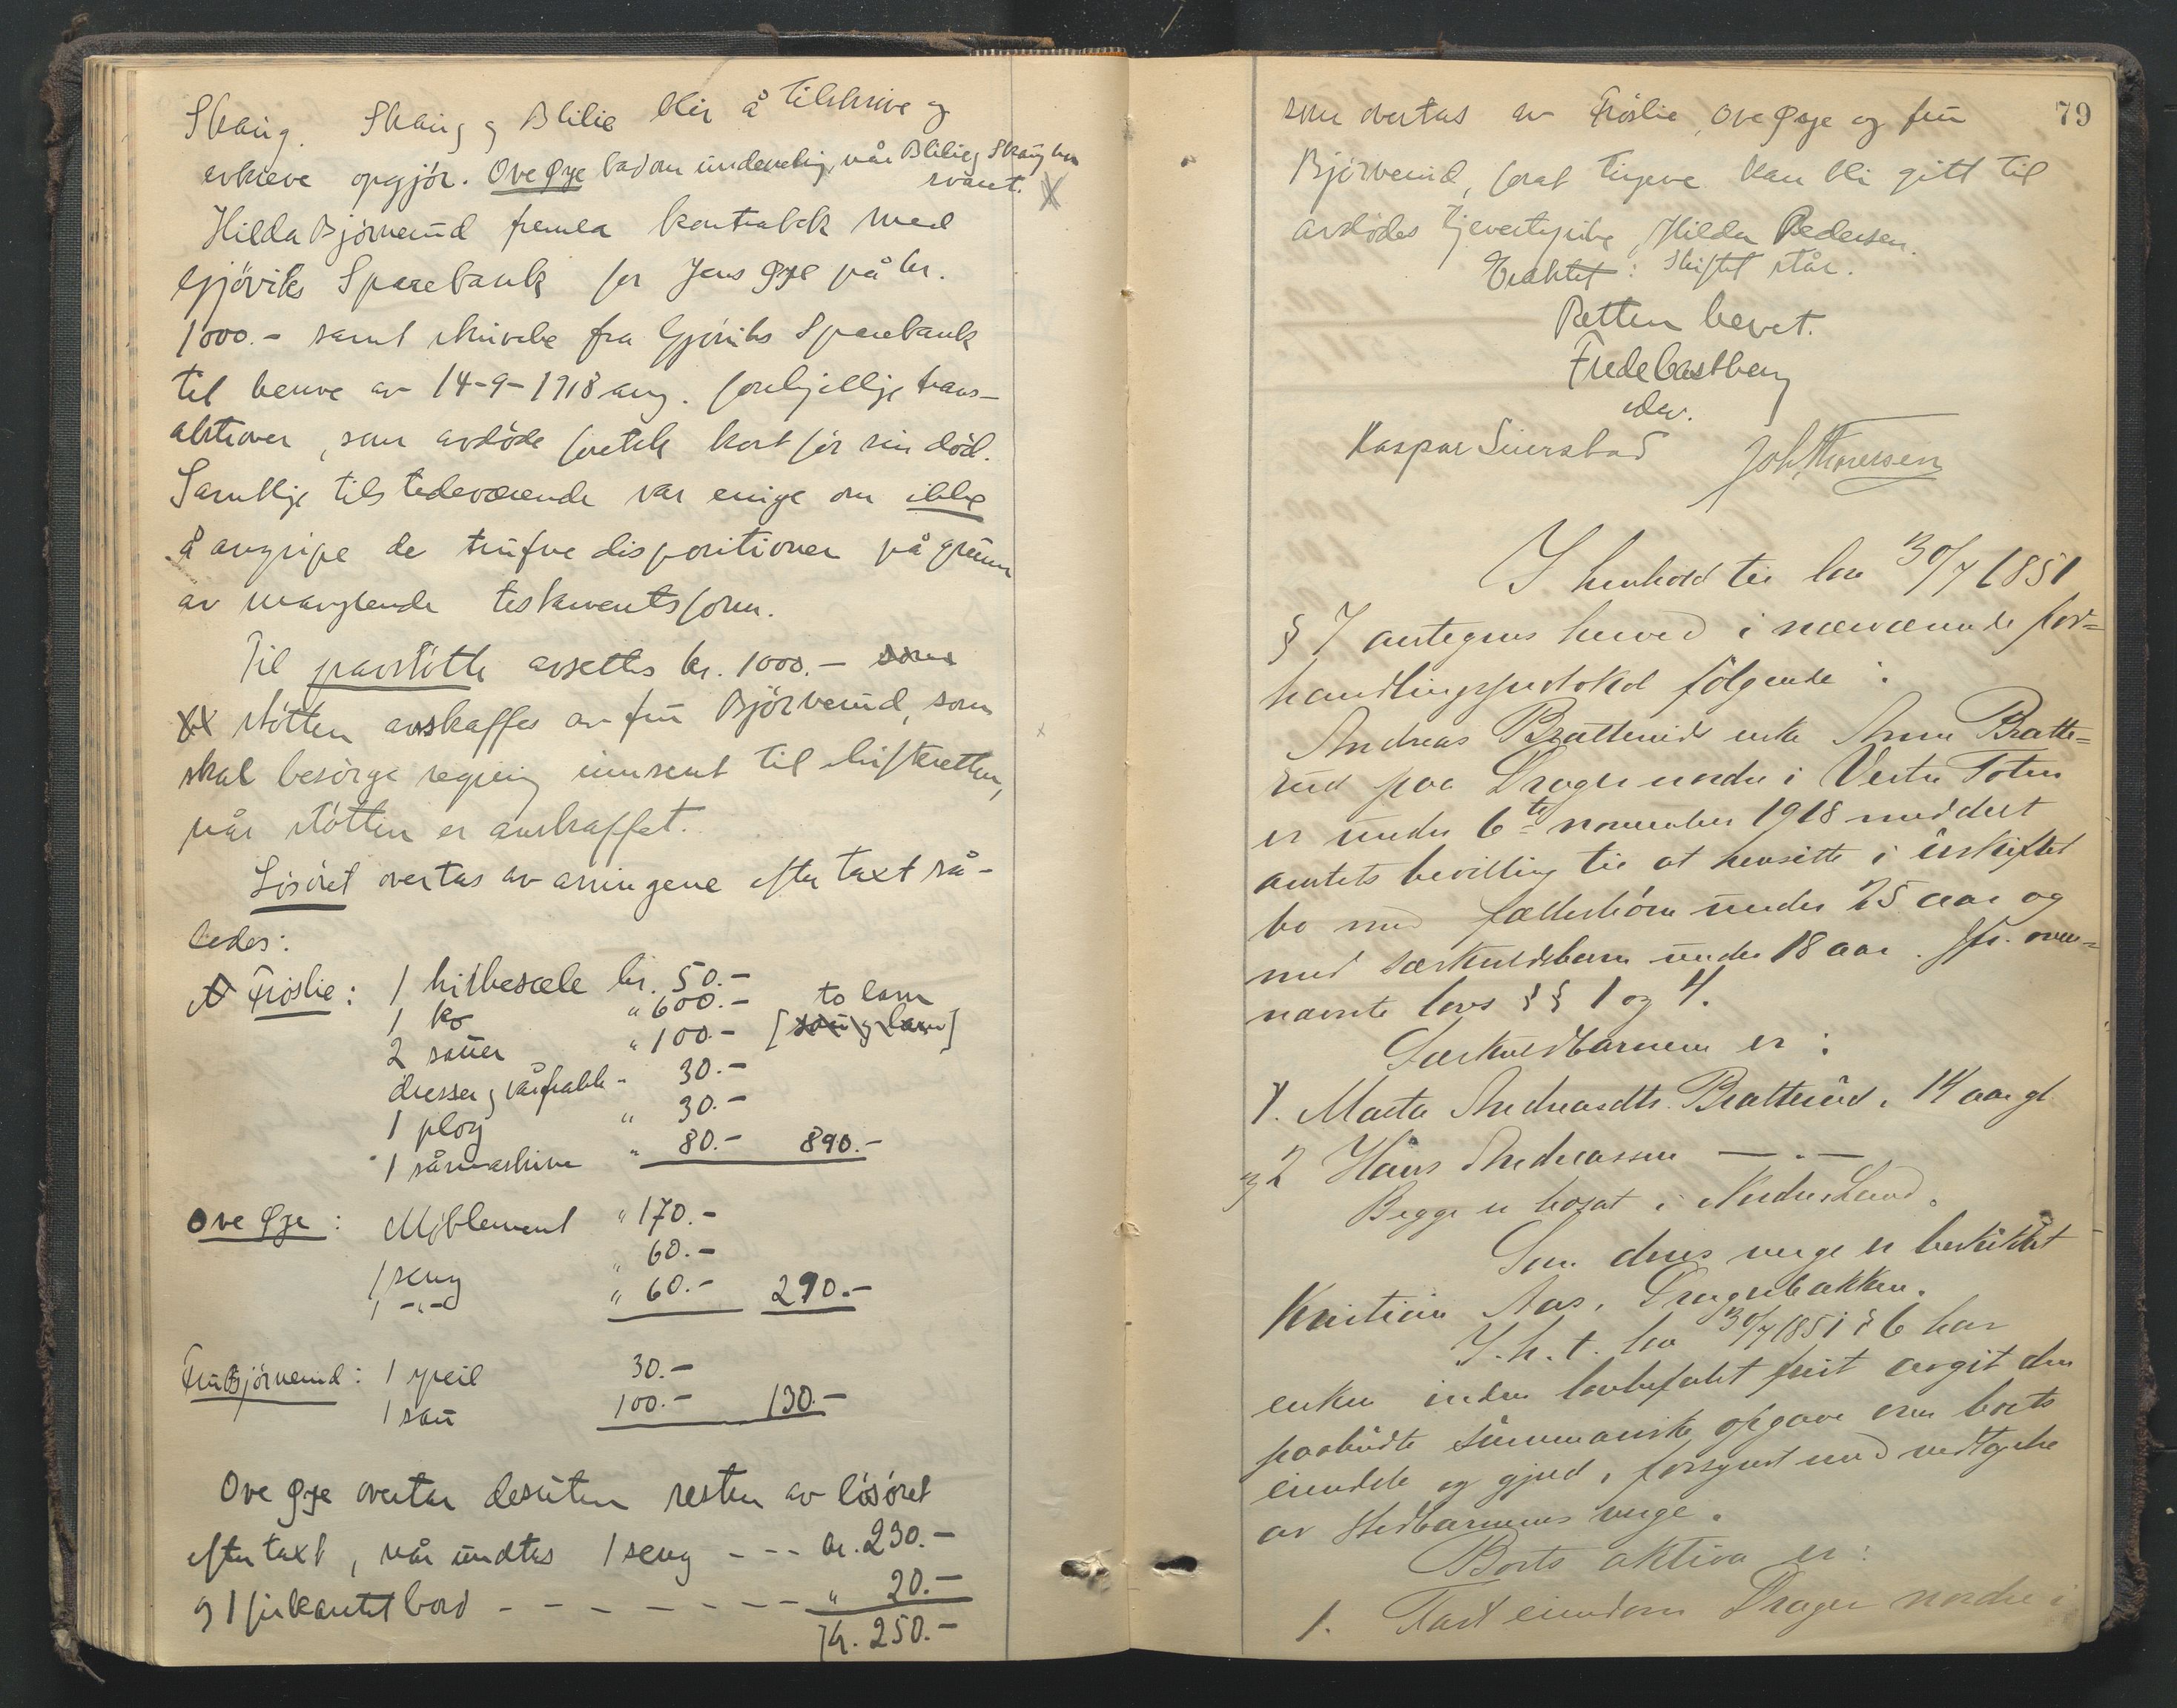 Skaug. Skaug og Blilie blir å tilskrive og
avkreve opgjör. Ove Øye bad om underretning, når Blilie og Skaug har
svaret. X
Hilda Björnerud fremla kontrabok med
Gjöviks Sparebank for Jens Øye på kr.
1000.- samt skrivelse fra Gjöviks Sparebank
til henne av 14-9-1918 ang. forskjellige trans-
aktioner, som avdöde foretok kort för sin död.
Samtlige tilstedeværende var enige om ikke
å angripe de trufne dispositioner på grunn
av manglende testamentsform.
Til gravstötte avsettes kr. 1000.- som
Stötten anskaffes av fru Björnerud, som
skal besörge regning innsent til skifteretten,
når stötten er anskaffet.
Lösöret overtas av arvingene efter taxt så-
ledes:
Fröslie: 1 hilbesæle kr. 50.-
1 ko " 600.- to lam
2 sauer " 100.- [sau og lam]
dresser og vårfrakk - 30.-
1 plog " 30.-
1 såmaskine " 80.- 890.-
Ove Øye: Möblement " 170.-
1 seng " 60.-
1 -"- " 60.- 290.-
Fru Björnerud: 1 speil 30.-
1 sau 100.- 130.-
Ove Øye overtar desuten resten av lösöret
efter taxt, når undtas 1 seng - - - kr. 230.-
og 1 firkantet bord - - - - - - - - " 20.-
Kr. 250.-
79
som overtas av Fröslie, Ove Øye og fru
Björnerud, forat tingene kan bli gitt til
avdödes tjenestepike, Hilda Pedersen.
Eraktet: Skiftet står.
Retten hevet.
Frede Castberg
edv.
Kaspar Sivesstad Joh. Thoresen
I henhold til lov 30/7 1851
§ 7 antegnes herved i nærværende for=
handlingsprotokol fölgende:
Andreas Bratteruds enke Anne Bratte=
rud paa Drager nordre i Vestre Toten
er under 6te november 1918 meddelt
amtets bevilling til at hensitte i uskiftet
bo med fællesbörn under 25 aar og
med særkuldsbarn under 18 aar. Jfr. oven=
nævnte lovs §§ 1 og 4.
Særkuldbarnene er:
1. Marta Andreasdtr. Bratterud, 14 aar gl
og 2 Hans Andreassen — . —
Begge er bosat i Nordre Land.
Som deres verge er beskikket
Kristian Aas, Dragerbakken.
I. h. t. lov 30/7 1851 § 6 har
enken inden lovbefalet frist avgit den
paabudte summariske opgave over boets
eiendele og gjæld, forsynet med vedtagelse
av stedbarnenes verge.
Boets aktiva er:
1. Fast eiendom Drager nordre i